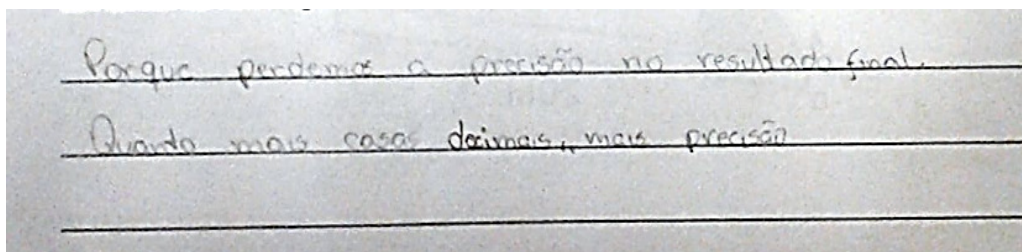 Porque perdemos a precisão no resultado final.
Quanto mais casas decimais, mais precisão